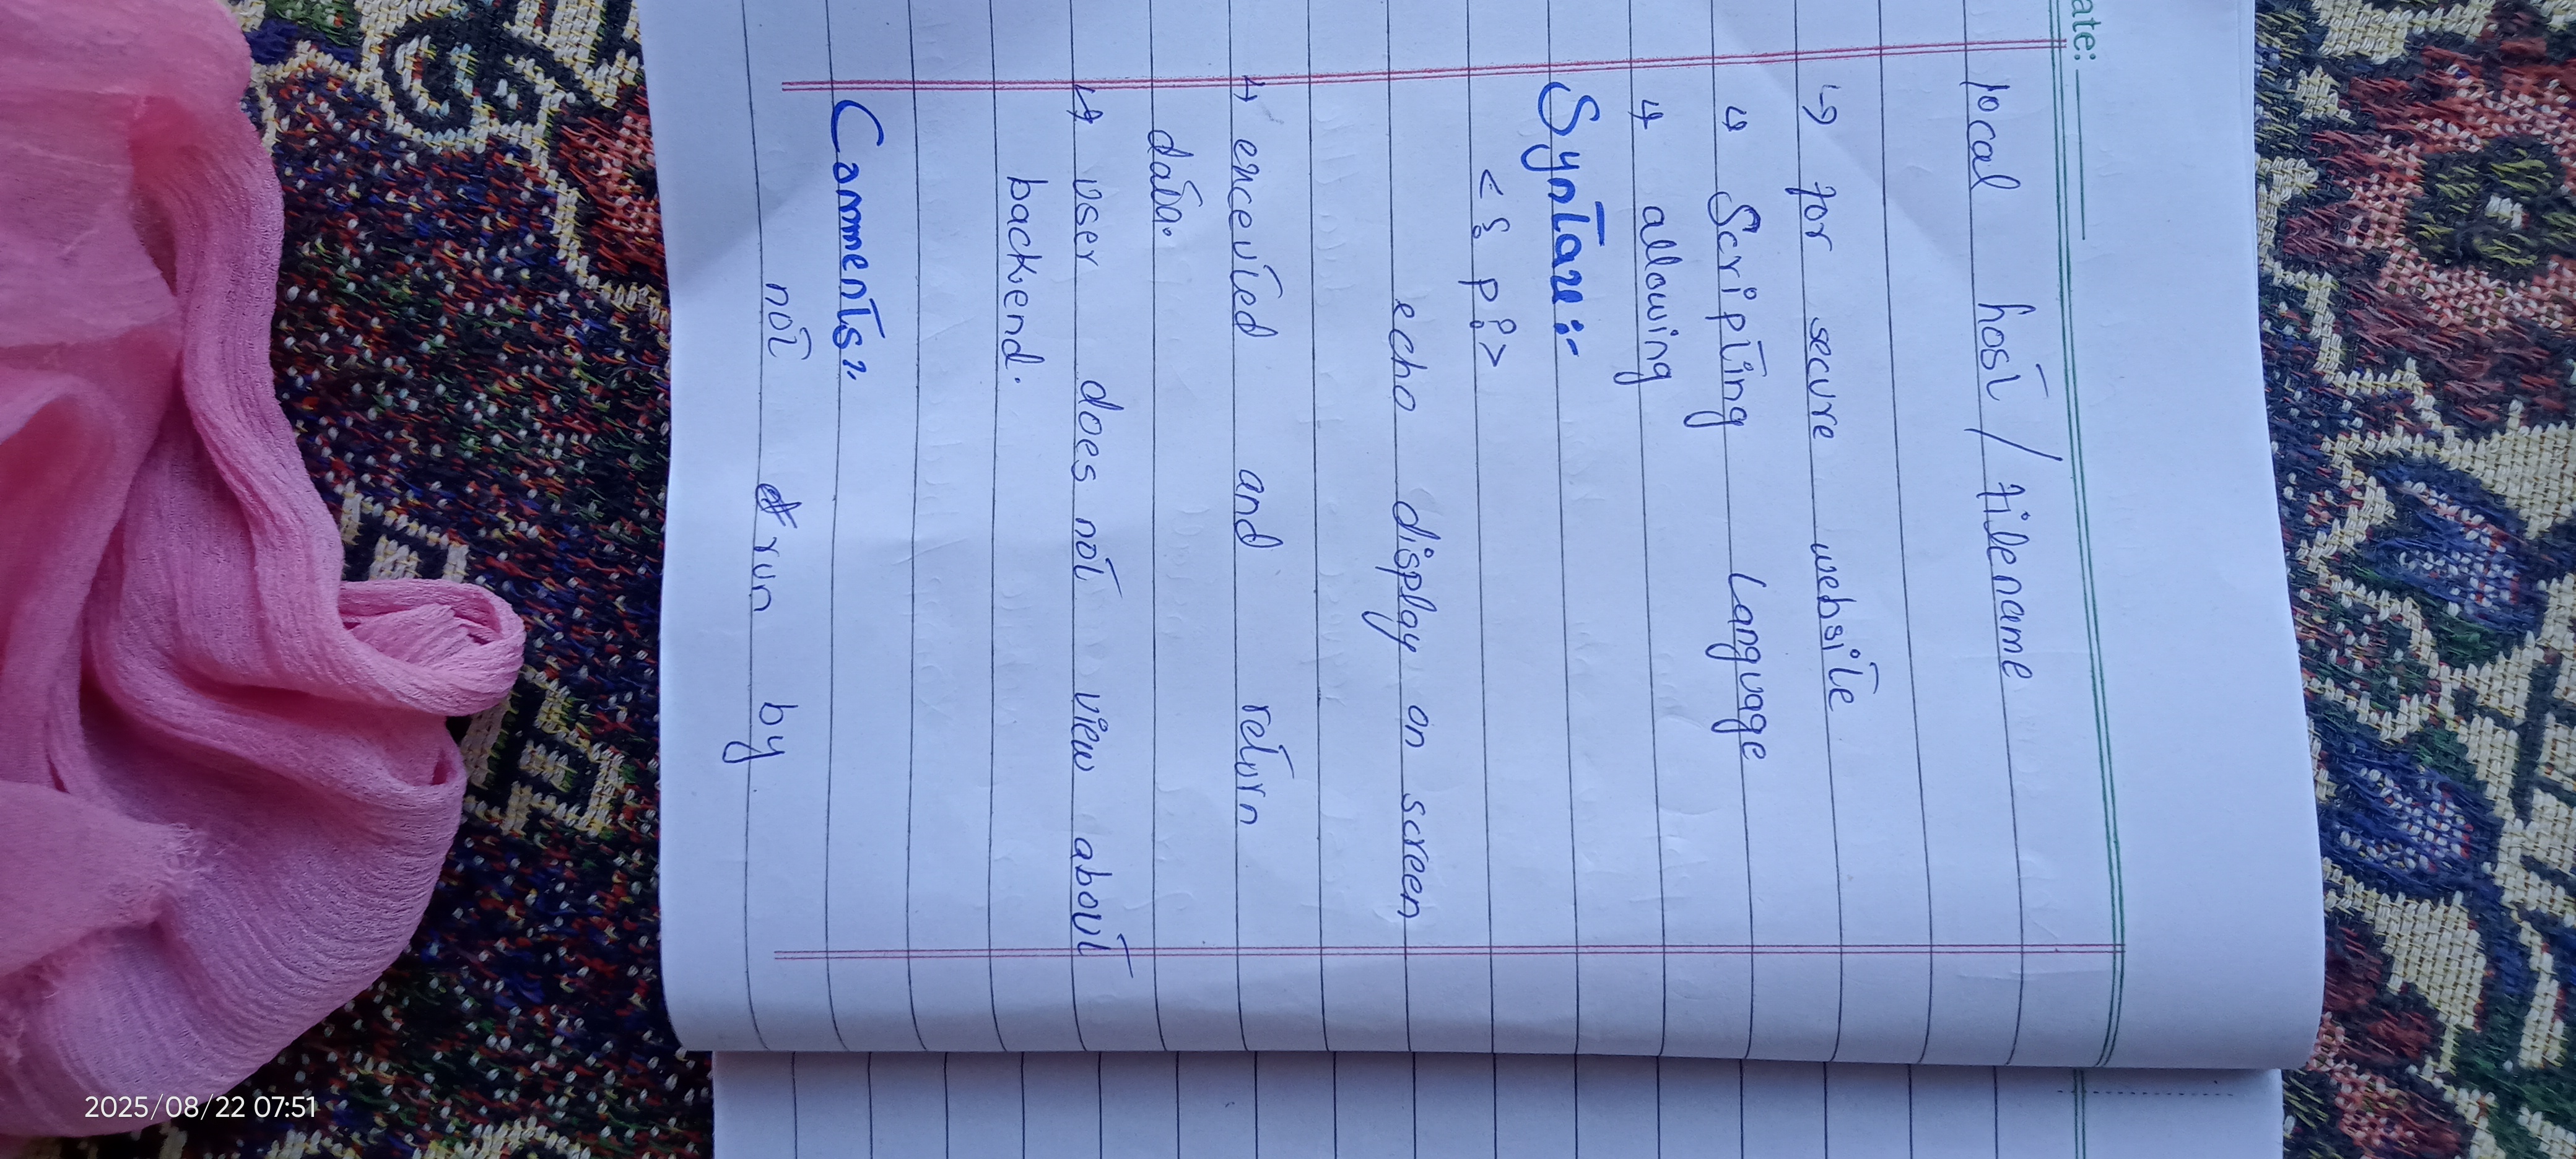 ate:
local host / filename
↳ for secure website
↳ Scripting Language
↳ allowing
Syntax:-
<? p?>
echo display on screen
↳ and return
data.
↳ user does not view about
backend.
Comments:
not run by
2025/08/22 07:51